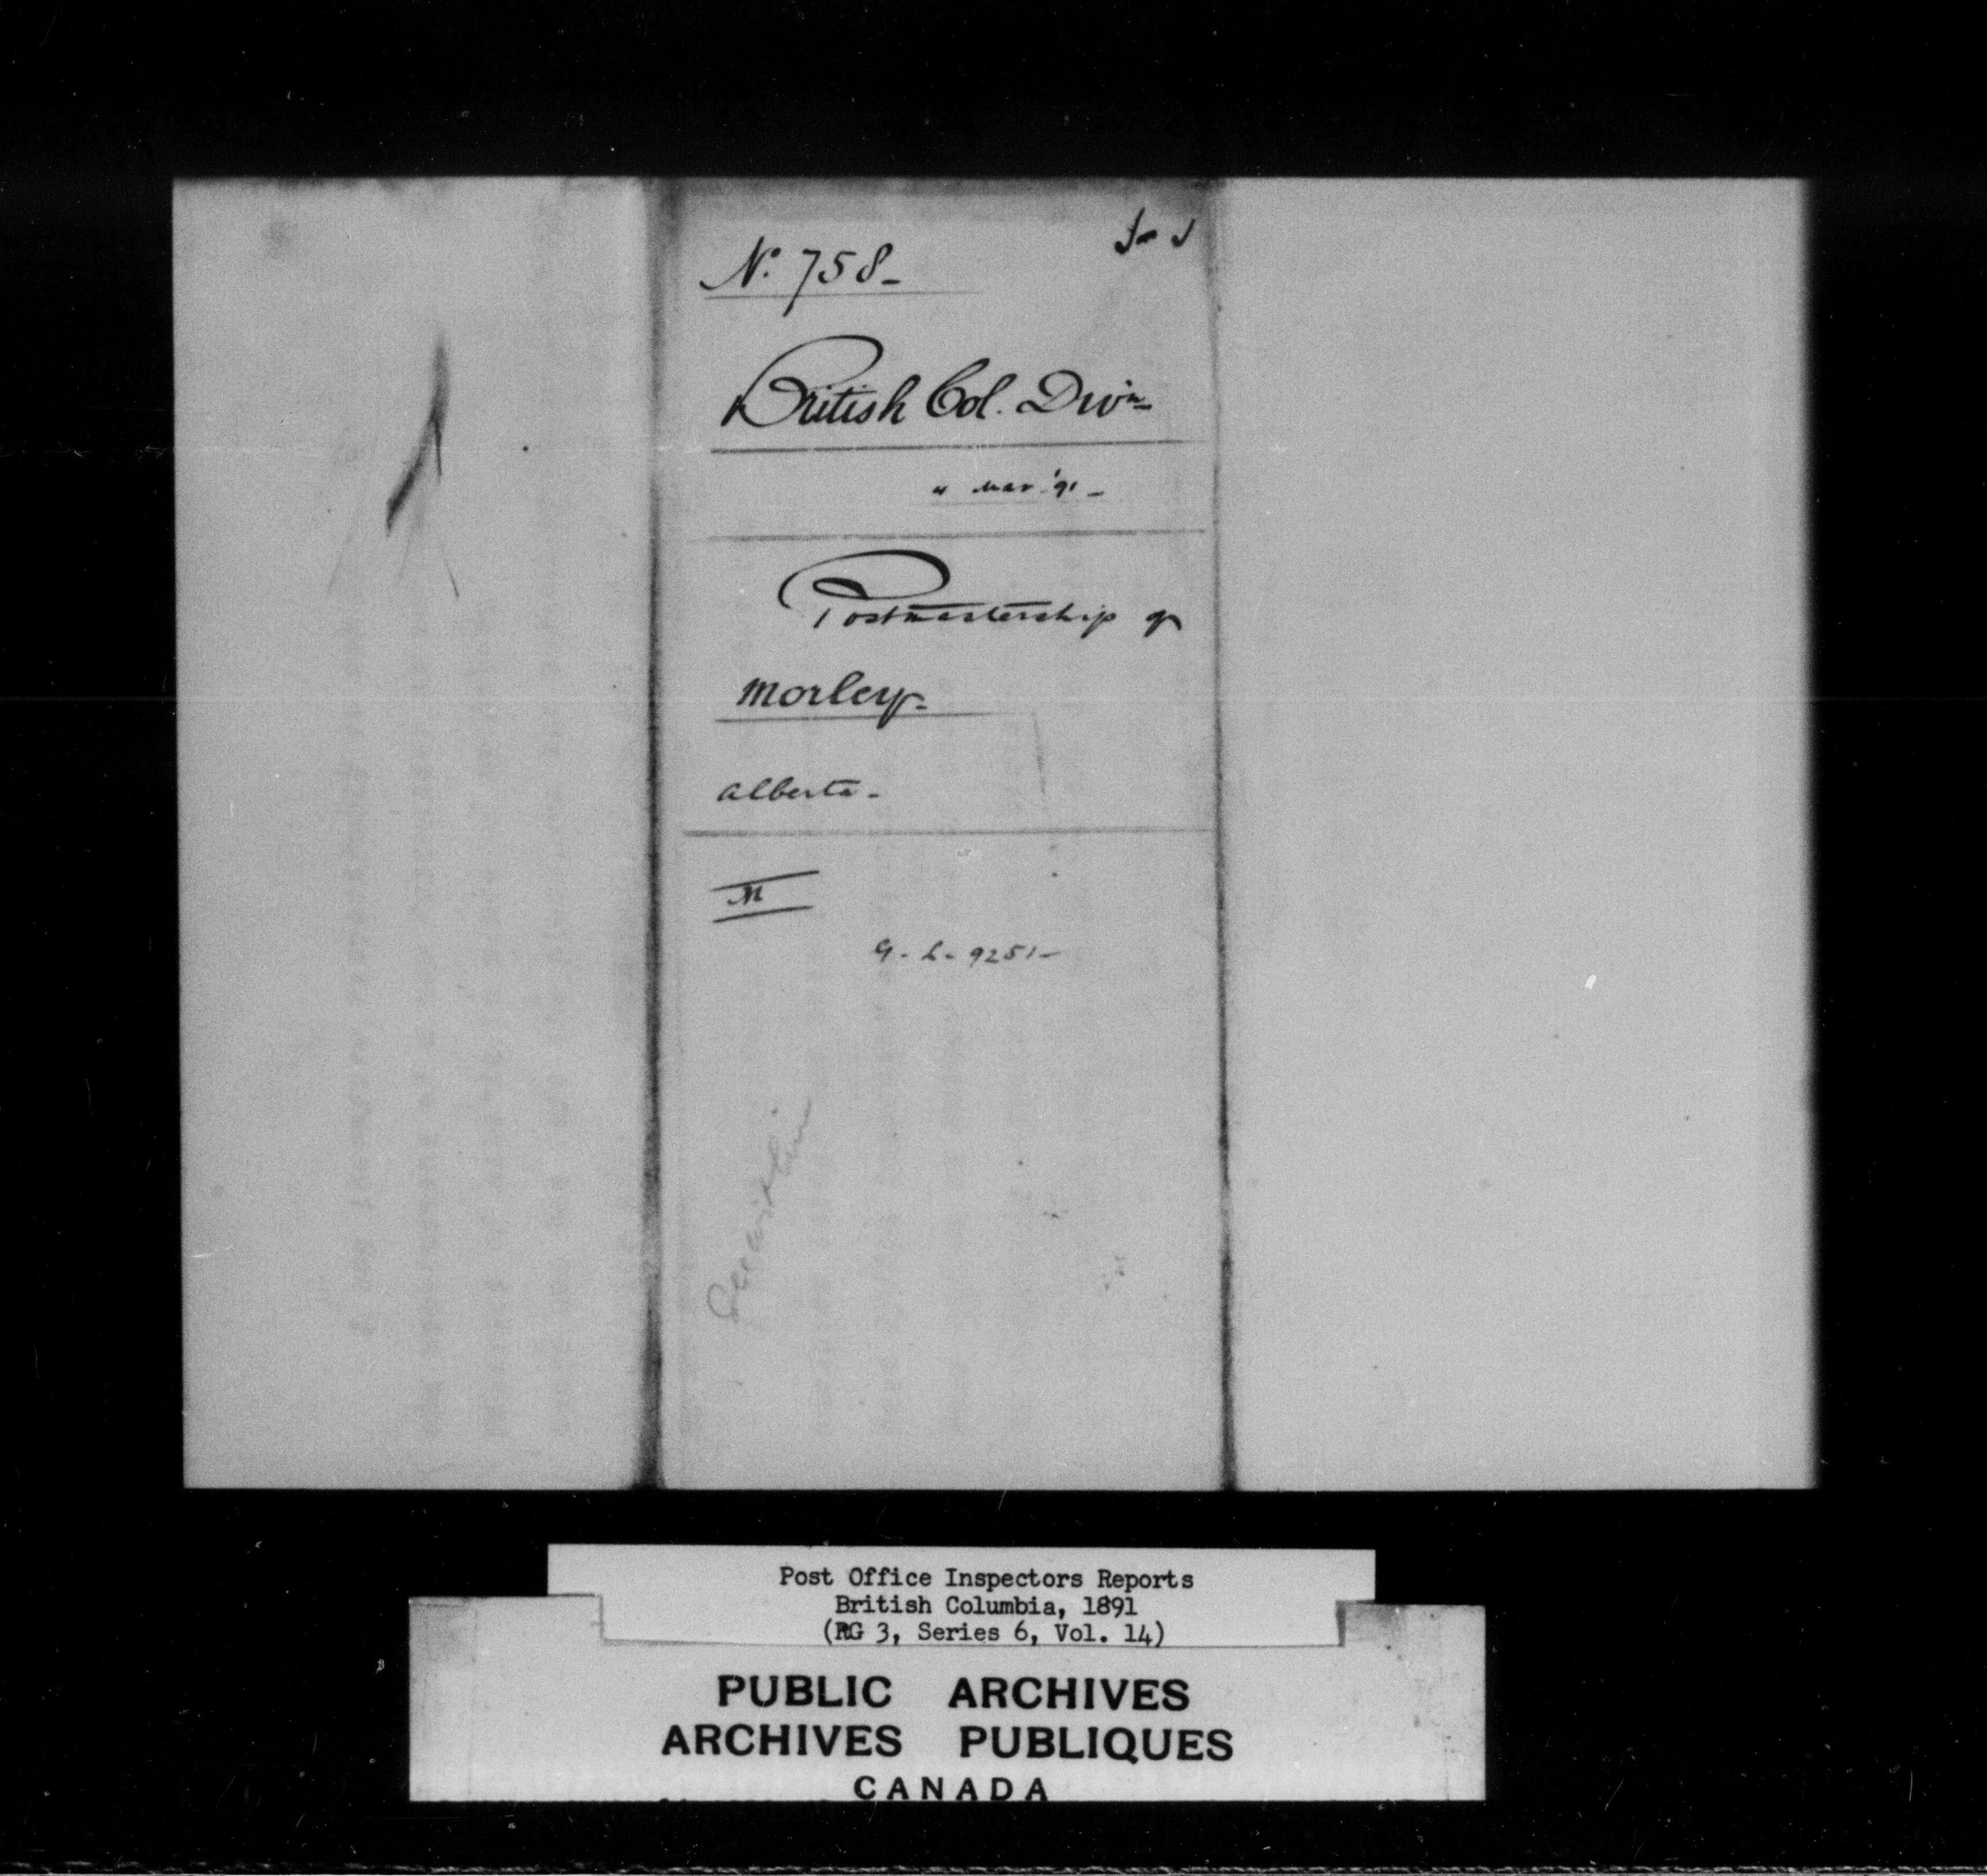 No. 758-
British Col. Divn
Mar. '91 -
Postmastership of
Morley-
Alberta-
M
G. L. 9251-
Post Office Inspectors Reports
British Columbia, 1891
(RG 3, Series 6, Vol. 14)
PUBLIC ARCHIVES
ARCHIVES PUBLIQUES
CANADA